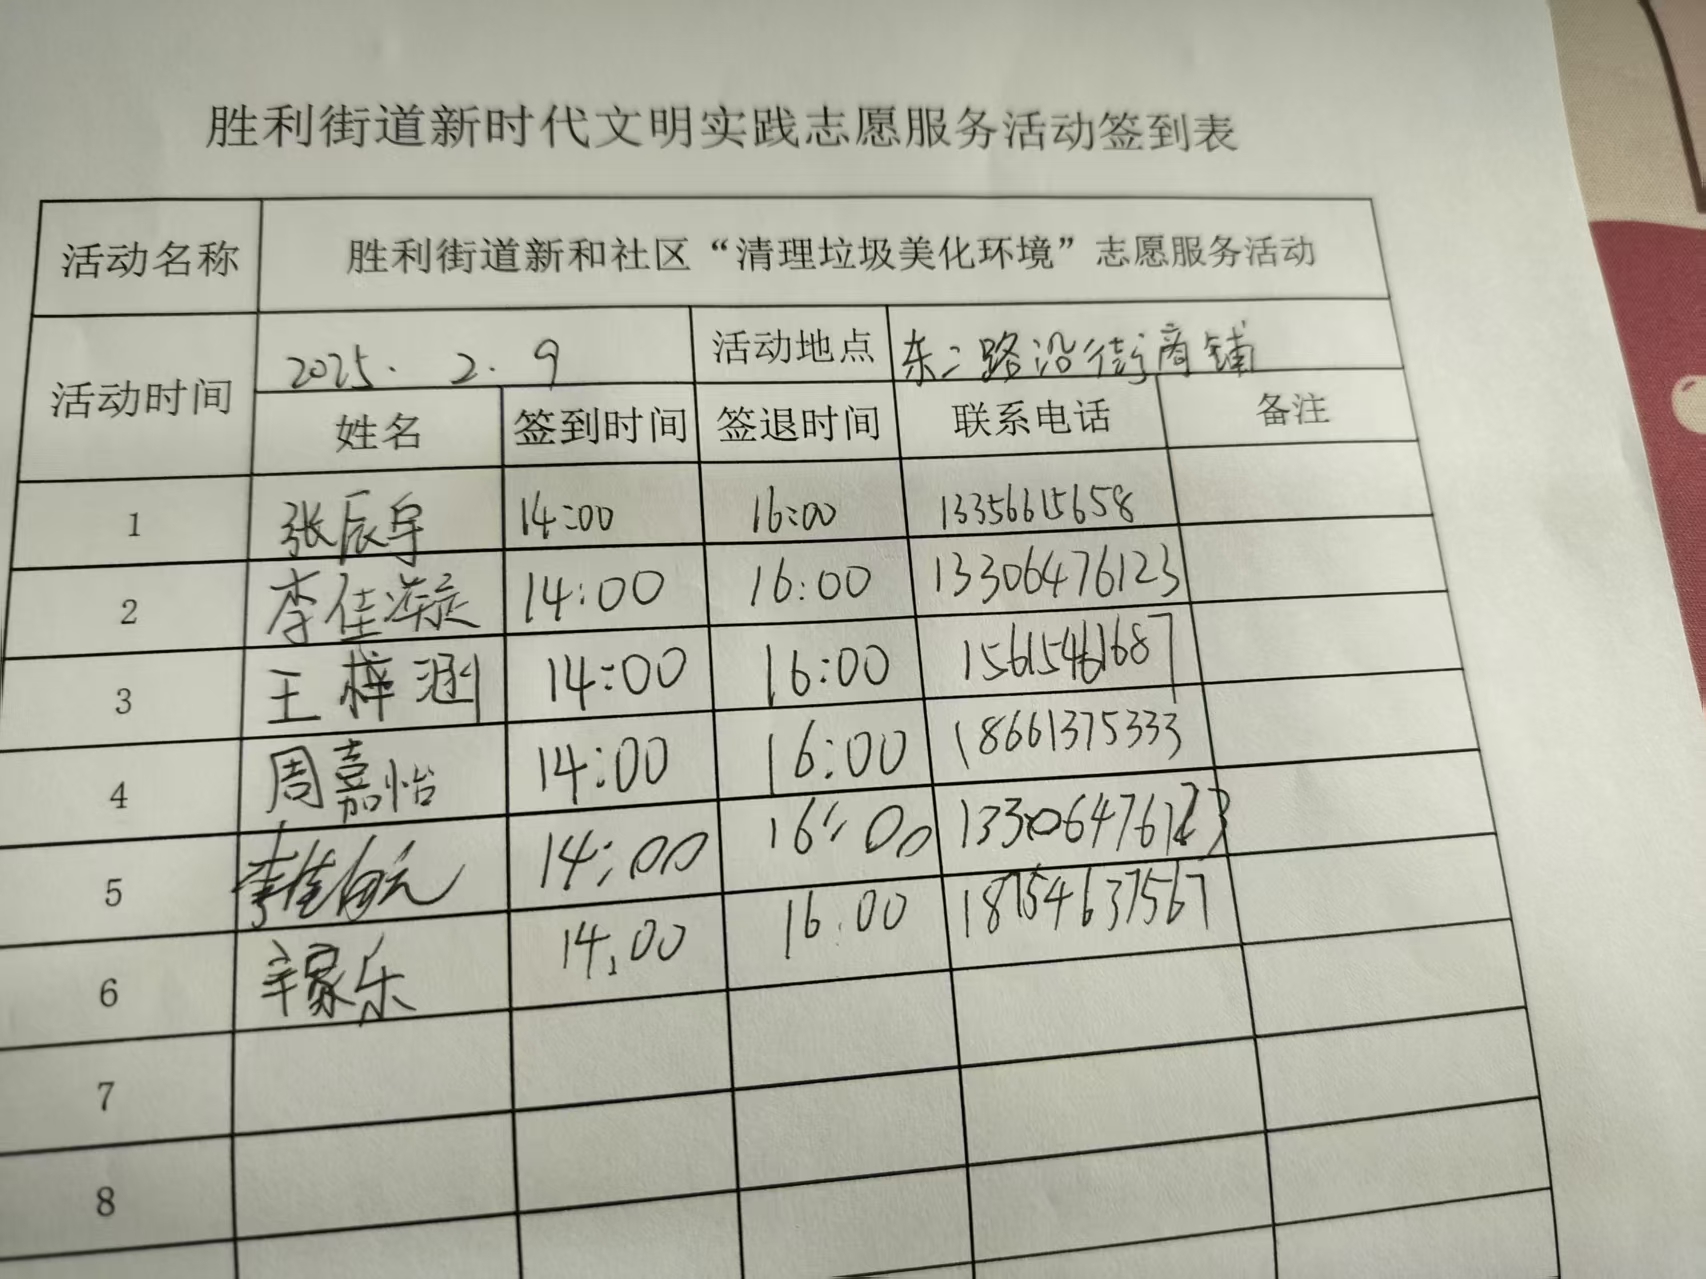 胜利街道新时代文明实践志愿服务活动签到表
活动名称 胜利街道新和社区“清理垃圾美化环境”志愿服务活动
活动时间 2025. 2. 9 活动地点 东二路沿街商铺
姓名 签到时间 签退时间 联系电话 备注
1 张辰宇 14:00 16:00 13356615658
2 李佳凝 14:00 16:00 13306476123
3 王梓涵 14:00 16:00 15615461687
4 周嘉怡 14:00 16:00 18661375333
5 14:00 16:00 13306476123
6 辛家乐 14:00 16:00 18754637567
7
8